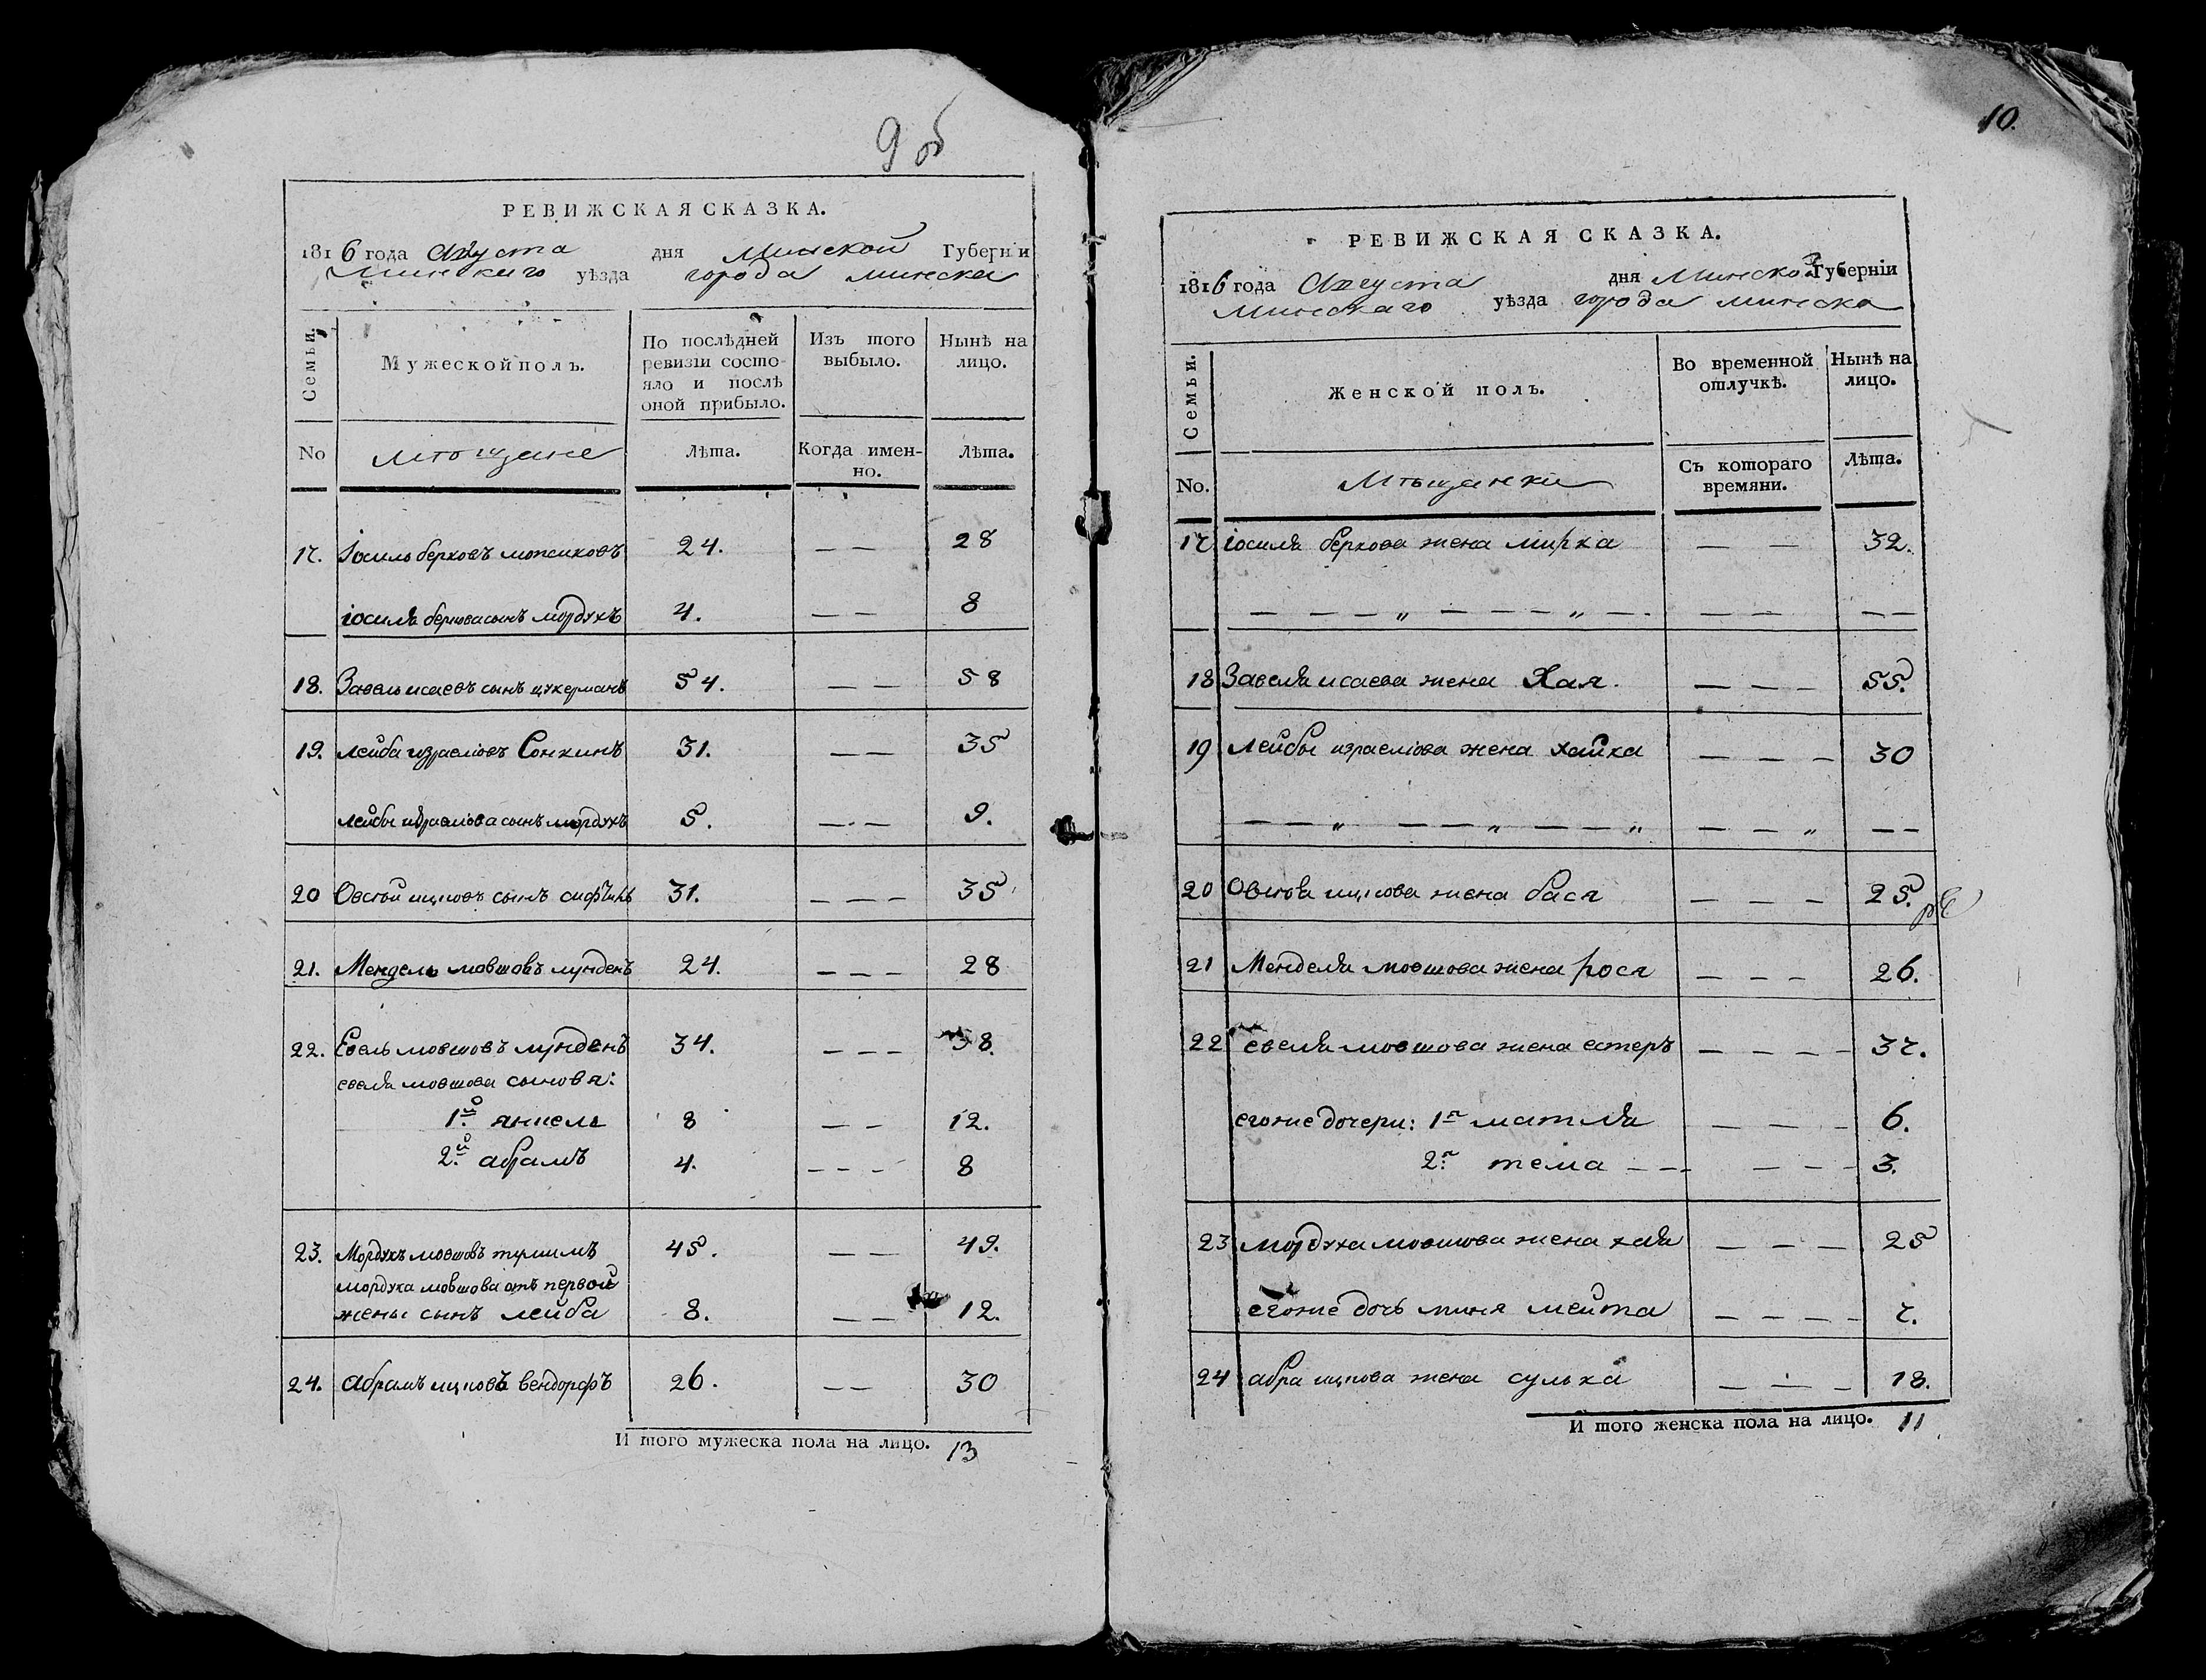 9 об
РЕВИЖСКАЯ СКАЗКА.
1816 года Августа дня Минской Губерніи
Минскаго уѣзда города минска
Семьи.
Мужеской полъ.
По послѣдней ревизіи состояло и послѣ оной прибыло.
Изъ того выбыло.
Нынѣ на лицо.
No
мѣщане
Лѣта.
Когда именно.
Лѣта.
17. Іосиль берковъ 24. — — 28
іосиля беркова сынъ мордухъ 4. — — 8
18. Завель исаевъ сынъ цукерманъ 54. — — 58
19. лейба израеліовъ Сонкинъ 31. — — 35
лейбы израеліова сынъ мордухъ 5. — — 9.
20 Овсѣй ицковъ сынъ 31. — — — 35
21. Мендель мовшовъ лунденъ 24. — — — 28
22. Евель мовшовъ лунденъ 34. — — — 38.
евеля мовшова сыновя:
1й янкель 8 — — 12.
2й абрамъ 4. — — — 8
23. Мордухъ мовшовъ 45. — — 49.
мордуха мовшова отъ первой
жены сынъ лейба 8. — — 12.
24. абрамъ ицковъ вендорфъ 26. — — 30
И того мужеска пола на лицо. 13
10.
РЕВИЖСКАЯ СКАЗКА.
1816 года Августа дня Минской Губерніи
Минскаго уѣзда города минска
Семьи.
Женской полъ.
Во временной отлучкѣ.
Нынѣ на лицо.
No.
Мѣщанки
Съ котораго времяни.
Лѣта.
17 іосиля беркова жена мирка — — 32.
— — — „ — — — — „ — — — — —
18 Завеля исаева жена Хая. — — — 55.
19 лейбы израеліова жена хайка — — — 30
— — „ — — „ — — „ — — „ — —
20 Овсѣя ицкова жена бася — — — 25.
21 Менделя мовшова жена рося — — — 26.
22 евеля мовшова жена естеръ — — — — 37.
егоже дочери: 1я матля — — — 6.
2я тема — — — — — 3.
23 мордуха мовшова жена хая — — — 25
егоже дочь миня мейта — — — — 7.
24 абра ицкова жена сулька — — — 18.
И того женска пола на лицо. 11